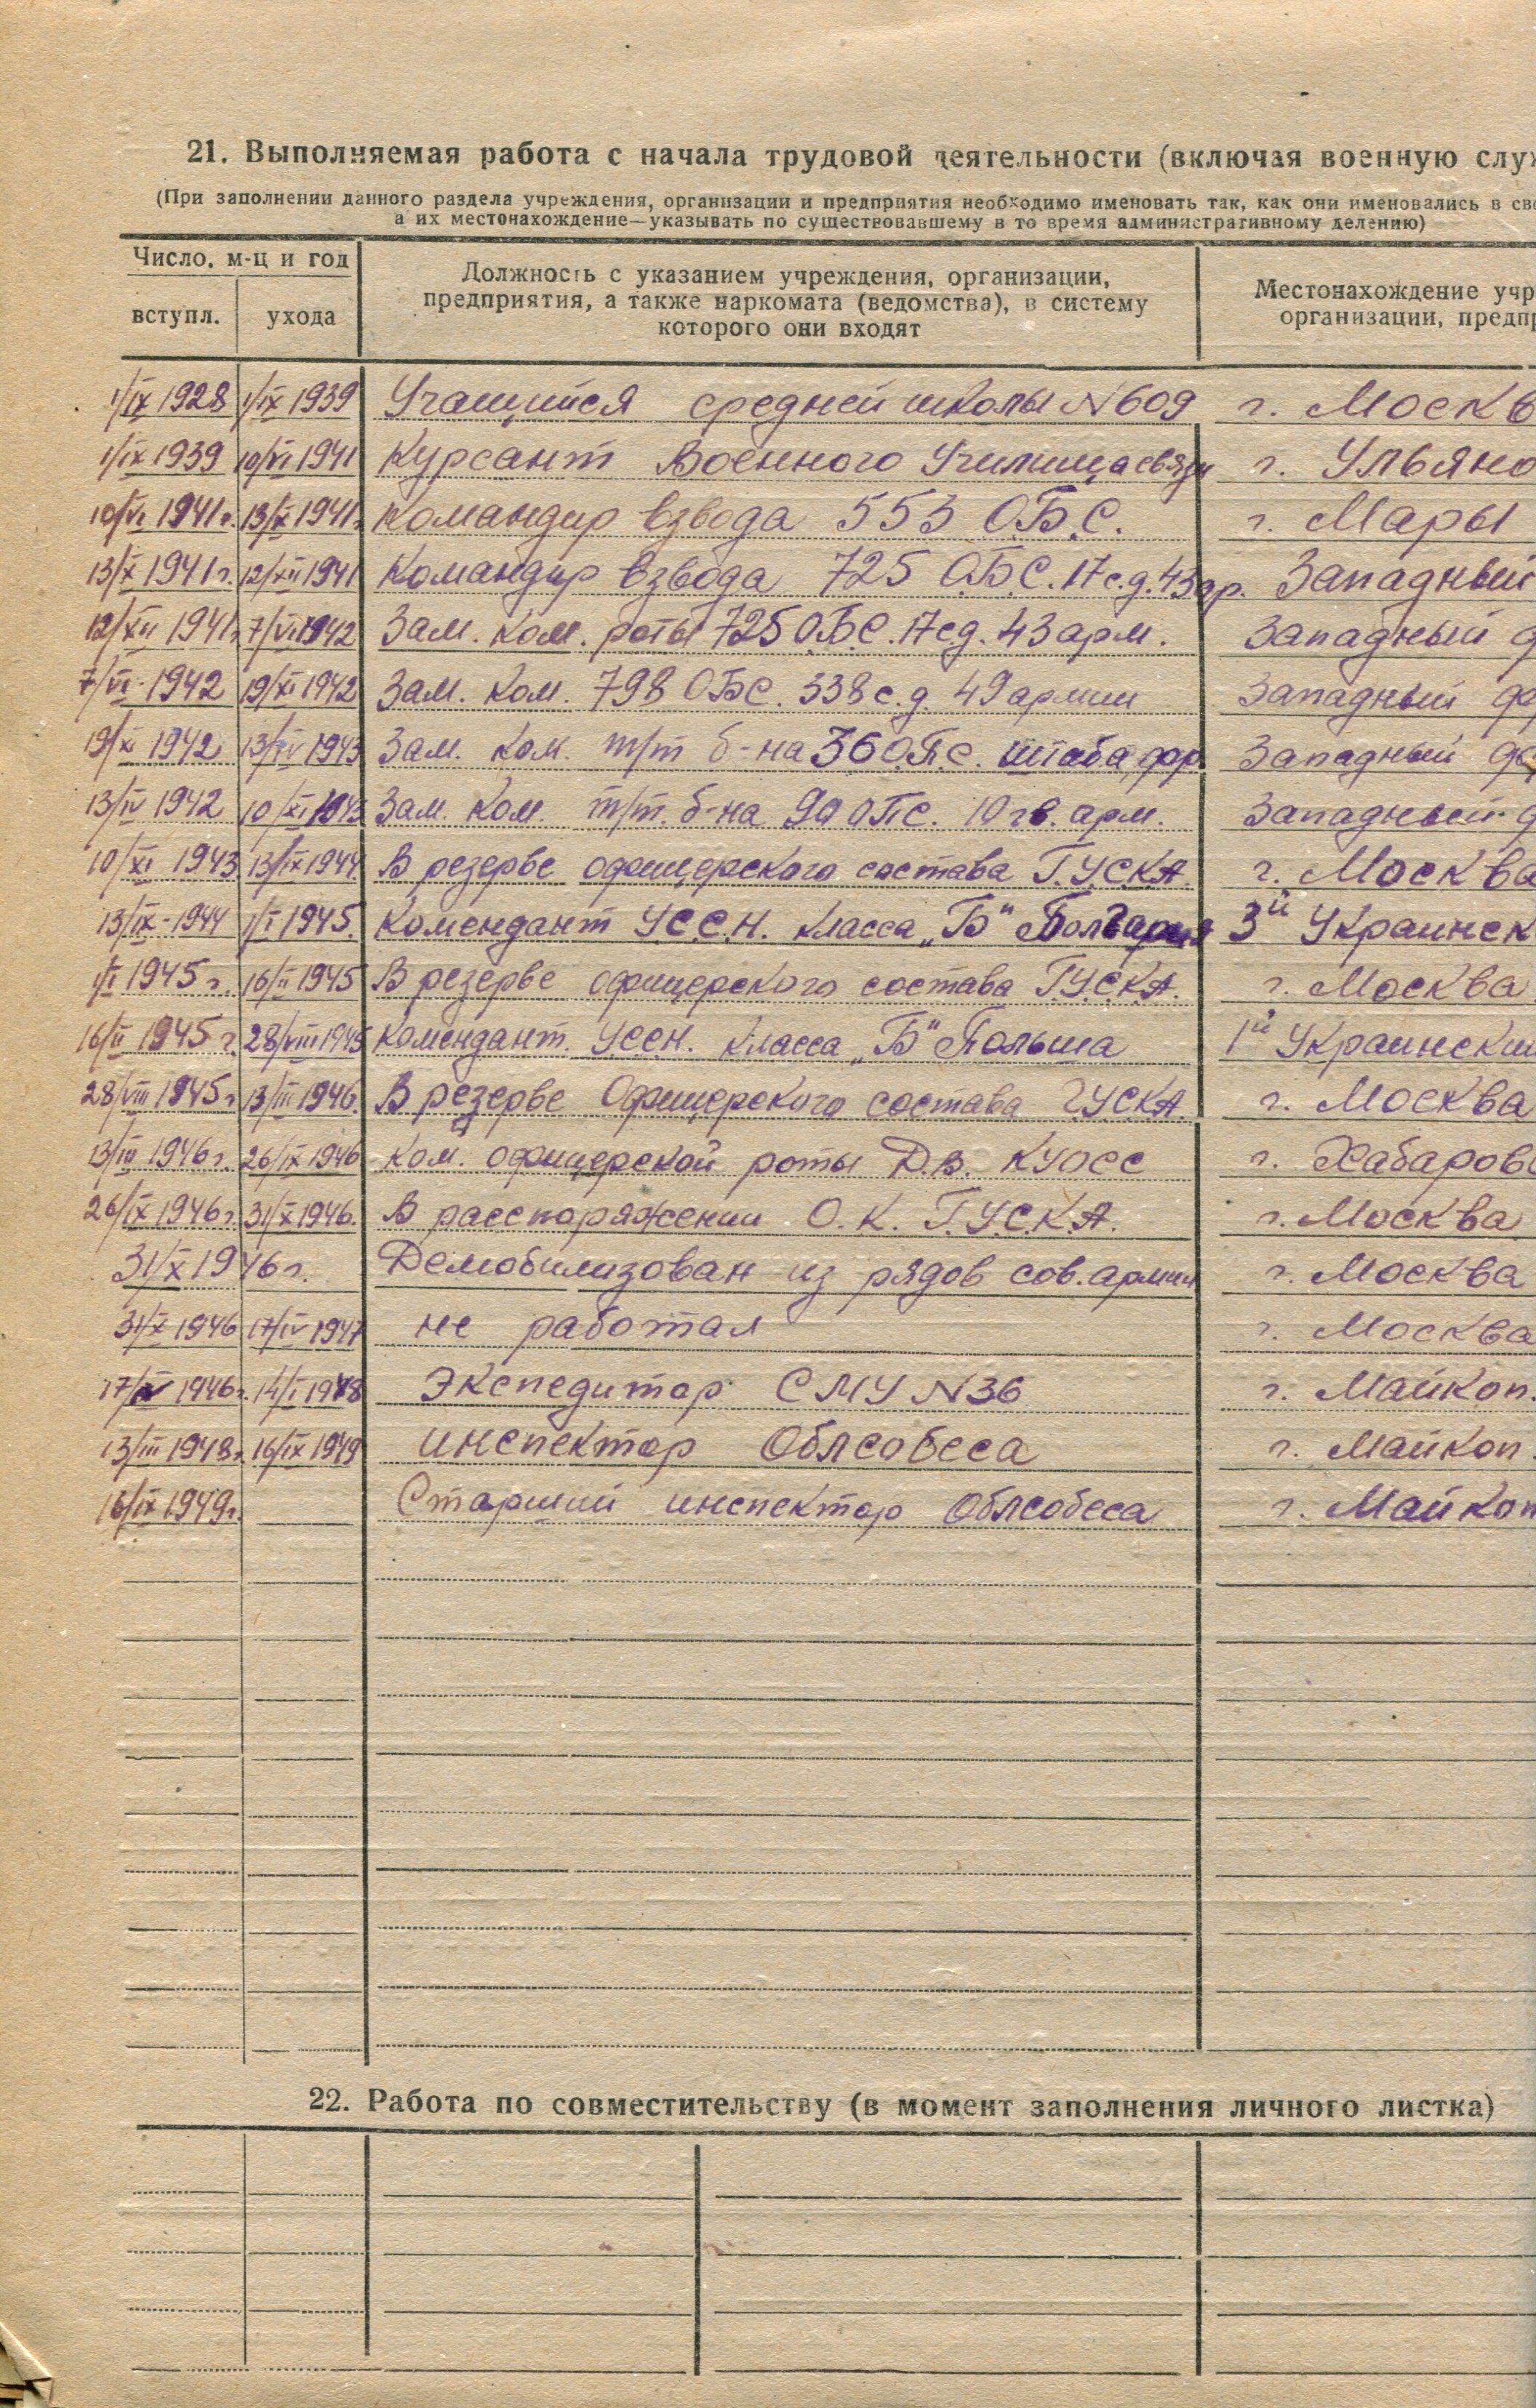 21. Выполняемая работа с начала трудовой деятельности (включая военную слу
(При заполнении данного раздела учреждения, организации и предприятия необходимо именовать так, как они именовались в св
а их местонахождение—указывать по существовавшему в то время административному делению)
Число, м-ц и год
вступл. ухода
Должность с указанием учреждения, организации,
предприятия, а также наркомата (ведомства), в систему
которого они входят
Местонахождение учр
организации, предпр
1/IX 1928 1/IX 1939 Учащийся средней школы N 609 г. Москв
1/IX 1939 10/VI 1941 Курсант Военного Училища связи г. Ульяно
10/VI 1941г. 13/X 1941г. Командир взвода 553 О.Б.С. г. Мары
13/X 1941г. 12/XII 1941 Командир взвода 725 О.Б.С. 17 с.д. 43 ар. Западный
12/XII 1941г. 7/VI 1942 Зам. ком. роты 725 О.Б.С. 17 сд. 43 арм. Западный ф
7/VI-1942 19/XI 1942 Зам. ком. 798 ОБС. 338 с.д. 49 армии Западный фр
19/XI 1942 13/IV 1943 Зам. ком. т/т б-на 36 О.П.С. штаба фр Западный ф
13/IV 1942 10/XI 1943 Зам. ком. т/т. б-на 99 ОПС. 10 гв. арм. Западный ф
10/XI 1943 13/IX 1944 В резерве офицерского состава Г.У.С.К.А. г. Москва
13/IX-1944 1/I 1945. Комендант У.С.С.Н. класса „Б“ Болгария 3й Украинск
1/I 1945 г. 16/II 1945 В резерве офицерского состава Г.У.С.К.А. г. Москва
16/II 1945 г. 28/VIII 1945 Комендант. УССН. класса „Б“ Польша 1й Украинский
28/VIII 1945г. 13/III 1946. В резерве Офицерского состава ГУСКА. г. Москва
13/III 1946г. 26/IX 1946 Ком. офицерской роты Д.В. КУОСС г. Хабаровс
26/IX 1946г. 31/X 1946. В расспоряжении О.К. Г.У.С.К.А. г. Москва
31/X 1946г. Демобилизован из рядов сов. армии г. Москва
31/X 1946 17/IV 1947 не работал г. Москва
17/IV 1946г. 14/I 1948 Экспедитор СМУ N 36 г. Майкоп.
13/III 1948г. 16/IX 1949 инспектор Облсобеса г. Майкоп.
16/IX 1949г. Старший инспектор Облсобеса г. Майкоп
22. Работа по совместительству (в момент заполнения личного листка)